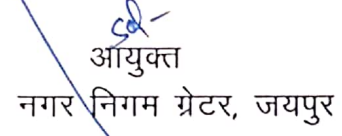 sd-
आयुक्त
नगर निगम ग्रेटर, जयपुर